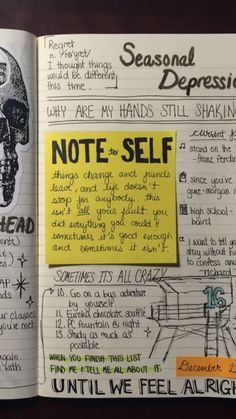 Regret
n. /rəˈgret/
I thought things
would be different
this time.
Seasonal
Depression
WHY ARE MY HANDS STILL SHAKIN
NOTE to SELF
things change and friends
leave, and life doesn't
stop for anybody. this
isn't all your fault. you
did everything you could &
sometimes it's good enough
and sometimes it isn't.
current f
stand on the
- franz ferdin
since you've
gone - morgan
high school -
baird
i want to tell y
story without h
to confess any
- richard
HEAD
SOMETIMES ITS ALL CRAZY
10. Go on a bus adventur
by yourself
11. Eureka chocolate souffle
12. Pt. fountain @ night
13. Study as much as
possible.
16
WHEN YOU FINISH THIS LIST
FIND ME & TELL ME ALL ABOUT IT.
December 2
UNTIL WE FEEL ALRIGH